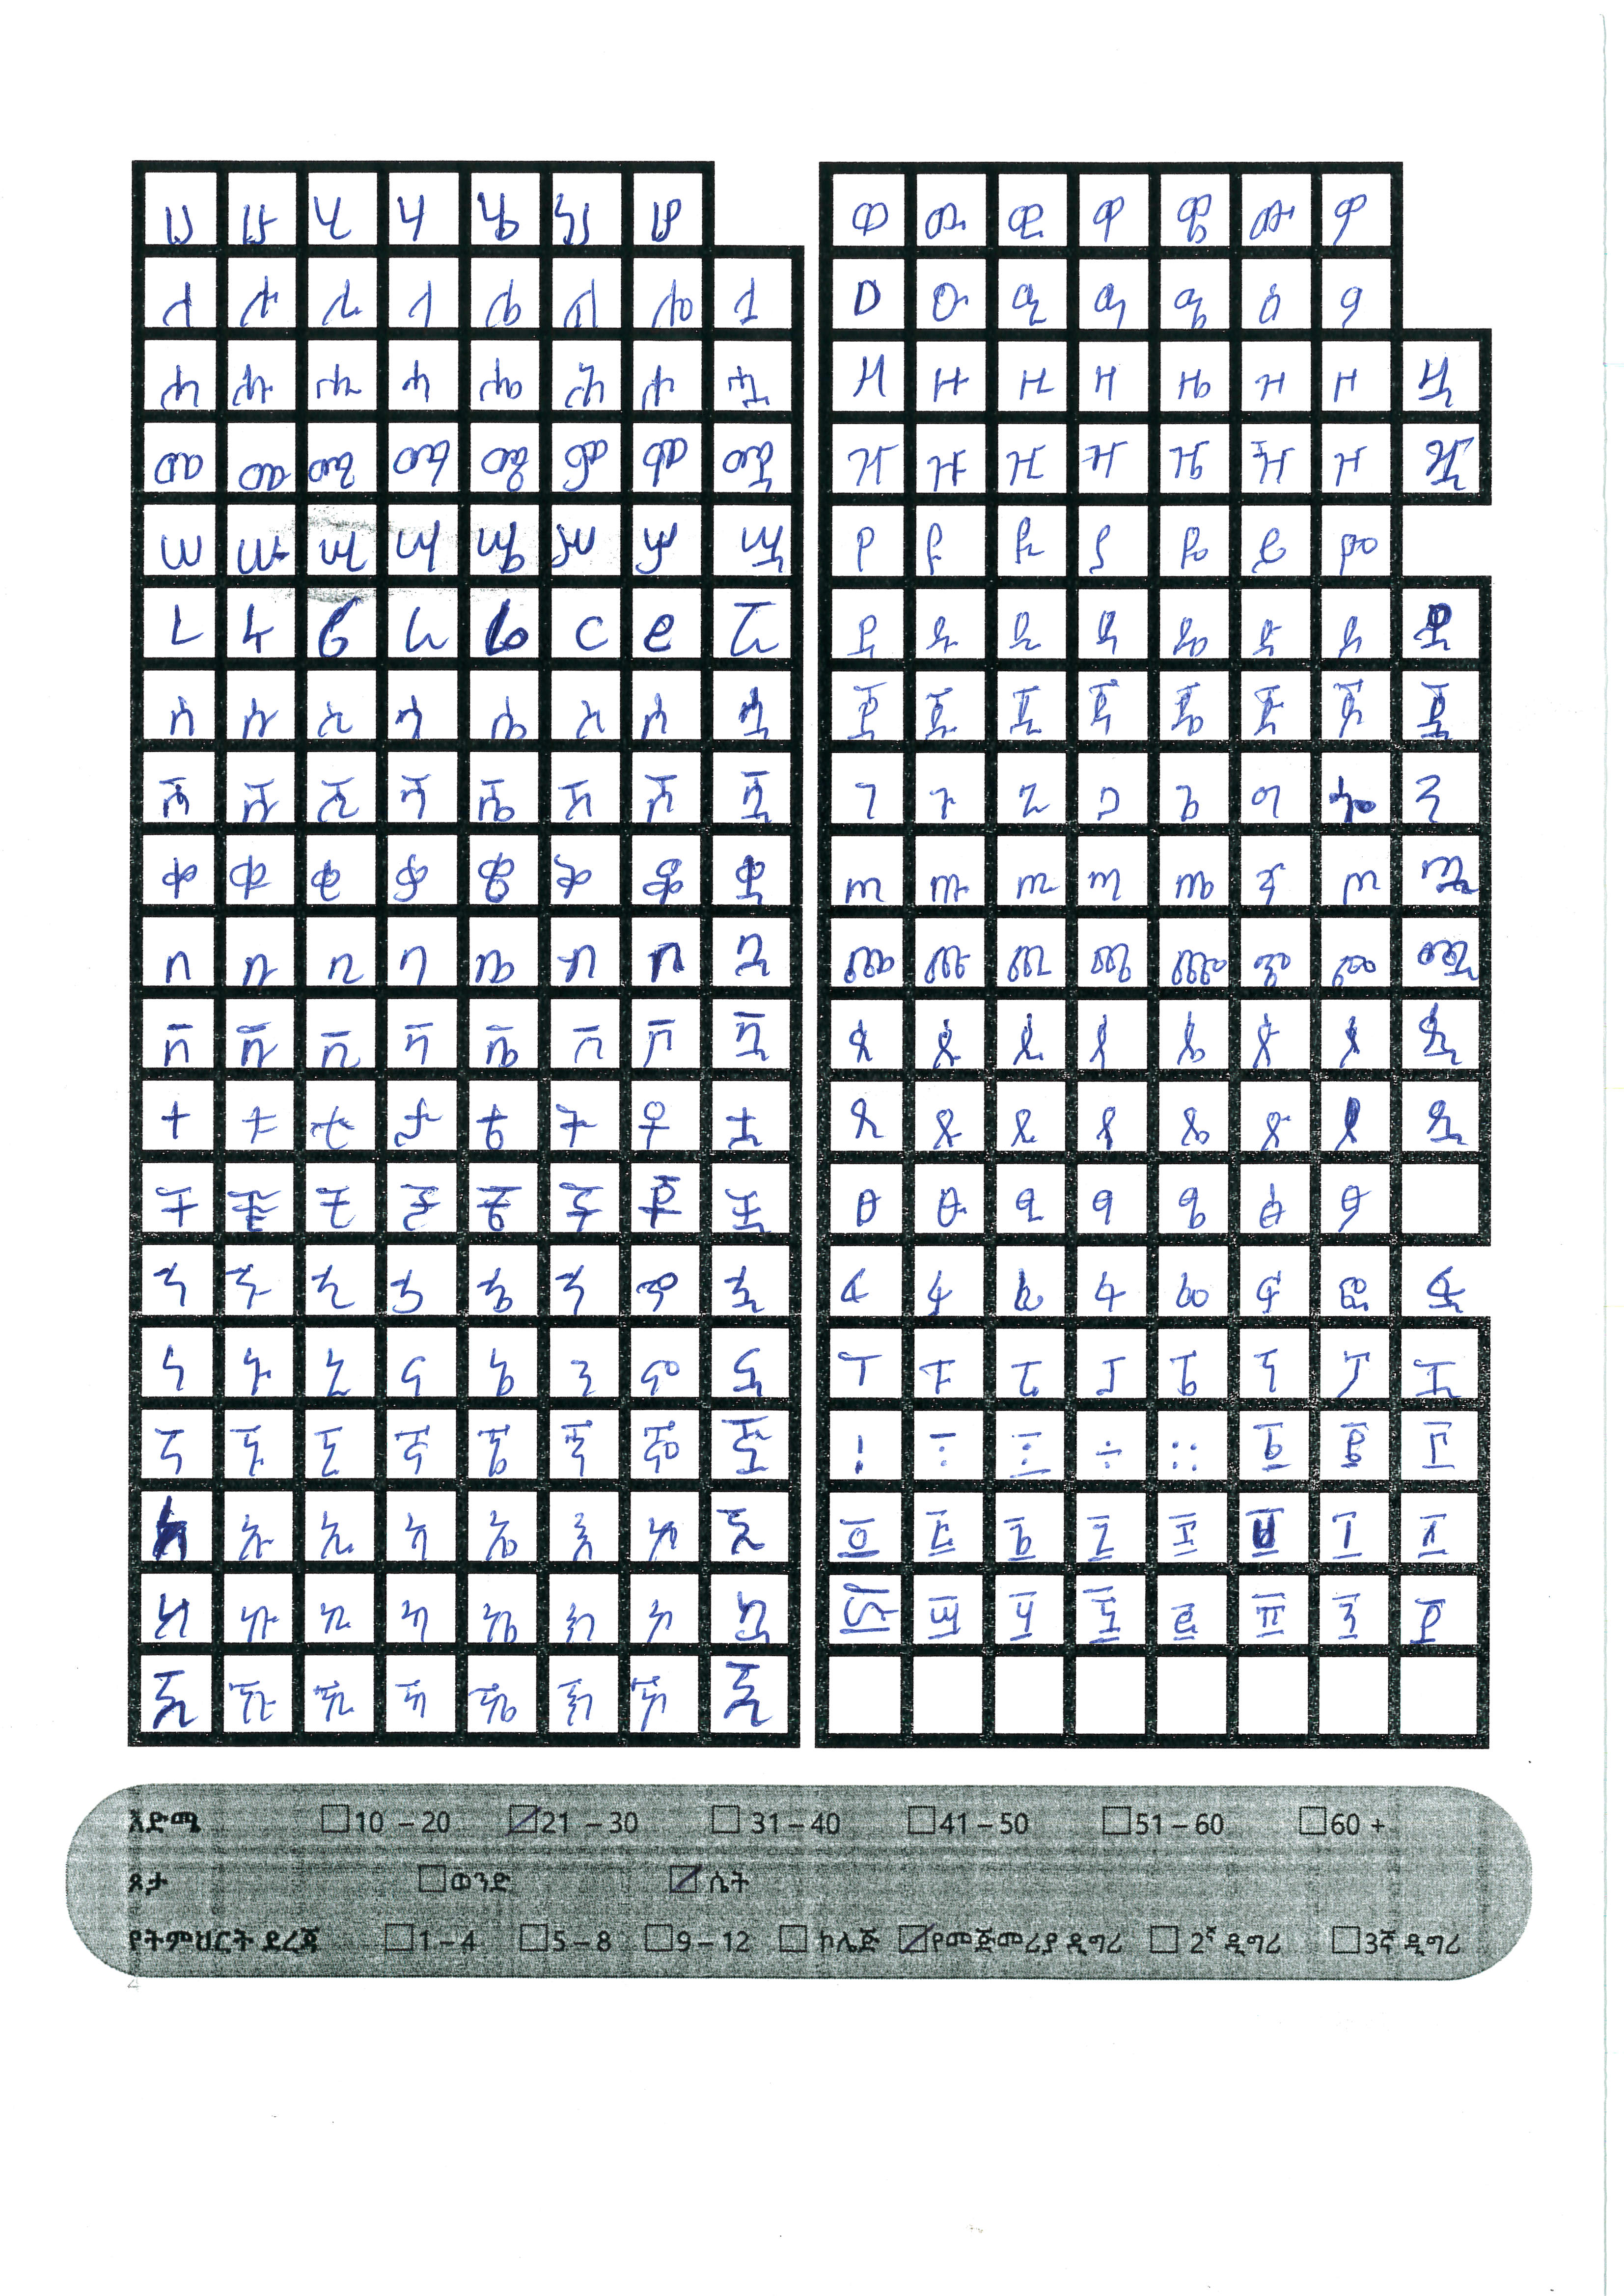 ሀ ሁ ሂ ሃ ሄ ህ ሆ
ለ ሉ ሊ ላ ሌ ል ሎ ሏ
ሐ ሑ ሒ ሓ ሔ ሕ ሖ ሗ
መ ሙ ሚ ማ ሜ ም ሞ ሟ
ሠ ሡ ሢ ሣ ሤ ሥ ሦ ሧ
ረ ሩ ሪ ራ ሬ ር ሮ ሯ
ሰ ሱ ሲ ሳ ሴ ስ ሶ ሷ
ሸ ሹ ሺ ሻ ሼ ሽ ሾ ሿ
ቀ ቁ ቂ ቃ ቄ ቅ ቆ ቋ
በ ቡ ቢ ባ ቤ ብ ቦ ቧ
ቨ ቩ ቪ ቫ ቬ ቭ ቮ ቯ
ተ ቱ ቲ ታ ቴ ት ቶ ቷ
ቸ ቹ ቺ ቻ ቼ ች ቾ ቿ
ኀ ኁ ኂ ኃ ኄ ኅ ኆ ኋ
ነ ኑ ኒ ና ኔ ን ኖ ኗ
ኘ ኙ ኚ ኛ ኜ ኝ ኞ ኟ
አ ኡ ኢ ኣ ኤ እ ኦ ኧ
ከ ኩ ኪ ካ ኬ ክ ኮ ኳ
ኸ ኹ ኺ ኻ ኼ ኽ ኾ ዃ
ወ ዉ ዊ ዋ ዌ ው ዎ
ዐ ዑ ዒ ዓ ዔ ዕ ዖ
ዘ ዙ ዚ ዛ ዜ ዝ ዞ ዟ
ዠ ዡ ዢ ዣ ዤ ዥ ዦ ዧ
የ ዩ ዪ ያ ዬ ይ ዮ
ደ ዱ ዲ ዳ ዴ ድ ዶ ዷ
ጀ ጁ ጂ ጃ ጄ ጅ ጆ ጇ
ገ ጉ ጊ ጋ ጌ ግ ጎ ጓ
ጠ ጡ ጢ ጣ ጤ ጥ ጦ ጧ
ጨ ጩ ጪ ጫ ጬ ጭ ጮ ጯ
ጰ ጱ ጲ ጳ ጴ ጵ ጶ ጷ
ጸ ጹ ጺ ጻ ጼ ጽ ጾ ጿ
ፀ ፁ ፂ ፃ ፄ ፅ ፆ
ፈ ፉ ፊ ፋ ፌ ፍ ፎ ፏ
ፐ ፑ ፒ ፓ ፔ ፕ ፖ ፗ
! ፡ ፤ ÷ ። ፩ ፪ ፫
፬ ፭ ፮ ፯ ፰ ፱ ፲ ፳
፴ ፵ ፶ ፷ ፸ ፹ ፺ ፻
እድሜ 10 – 20 21 – 30 31 – 40 41 – 50 51 – 60 60 +
ጾታ ወንድ ሴት
የትምህርት ደረጃ 1 – 4 5 – 8 9 – 12 ኮሌጅ የመጅመሪያ ዲግሪ 2ኛ ዲግሪ 3ኛ ዲግሪ